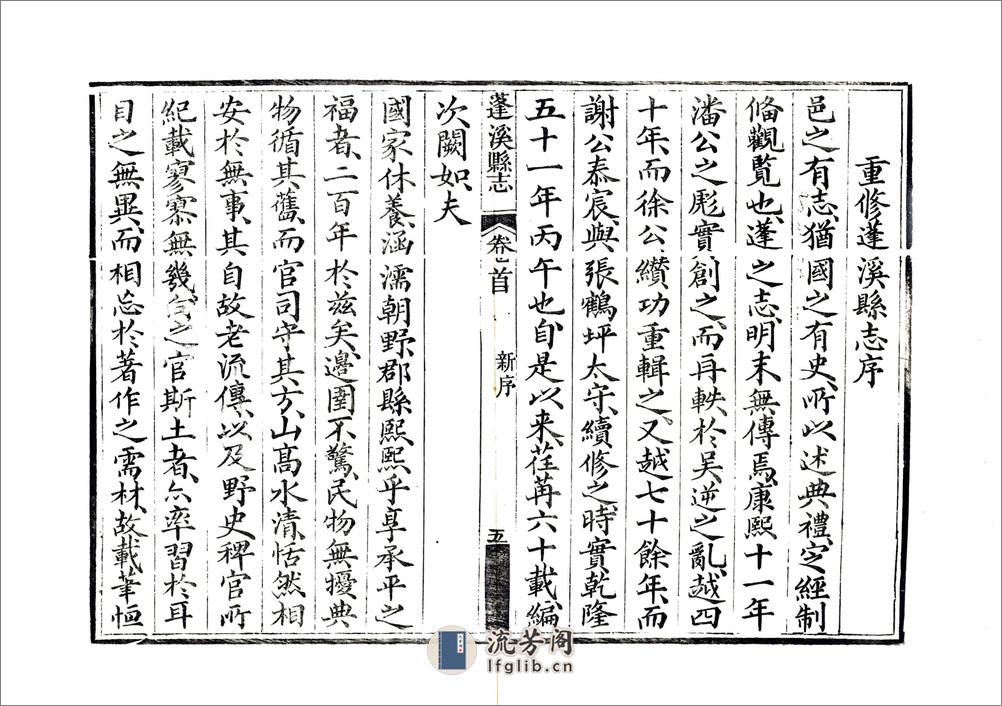 重修蓬溪縣志序
邑之有志、猶國之有史、所以述典禮、定經制
備觀覽也、蓬之志、明末無傳焉、康熙十一年
潘公之彪實創之、而再軼於吳逆之亂、越四
十年、而徐公纘功重輯之、又越七十餘年、而
謝公泰宸、與張鶴坪太守、續修之、時實乾隆
五十一年丙午也、自是以來、荏苒六十載、編
蓬溪縣志
卷首
新序
五
次闕如、夫
國家休養、涵濡朝野、郡縣熙熙乎享承平之
福者、二百年於兹矣、邊圉不驚、民物無擾、典
物循其舊、而官司守其方、山高水清、恬然相
安於無事、其自故老流傳、以及野史稗官、所
紀載寥寥無幾、自之官斯土者、亦率習於耳
目之無異、而相忘於著作之需材、故載筆恒
流芳阁
lfglib.cn